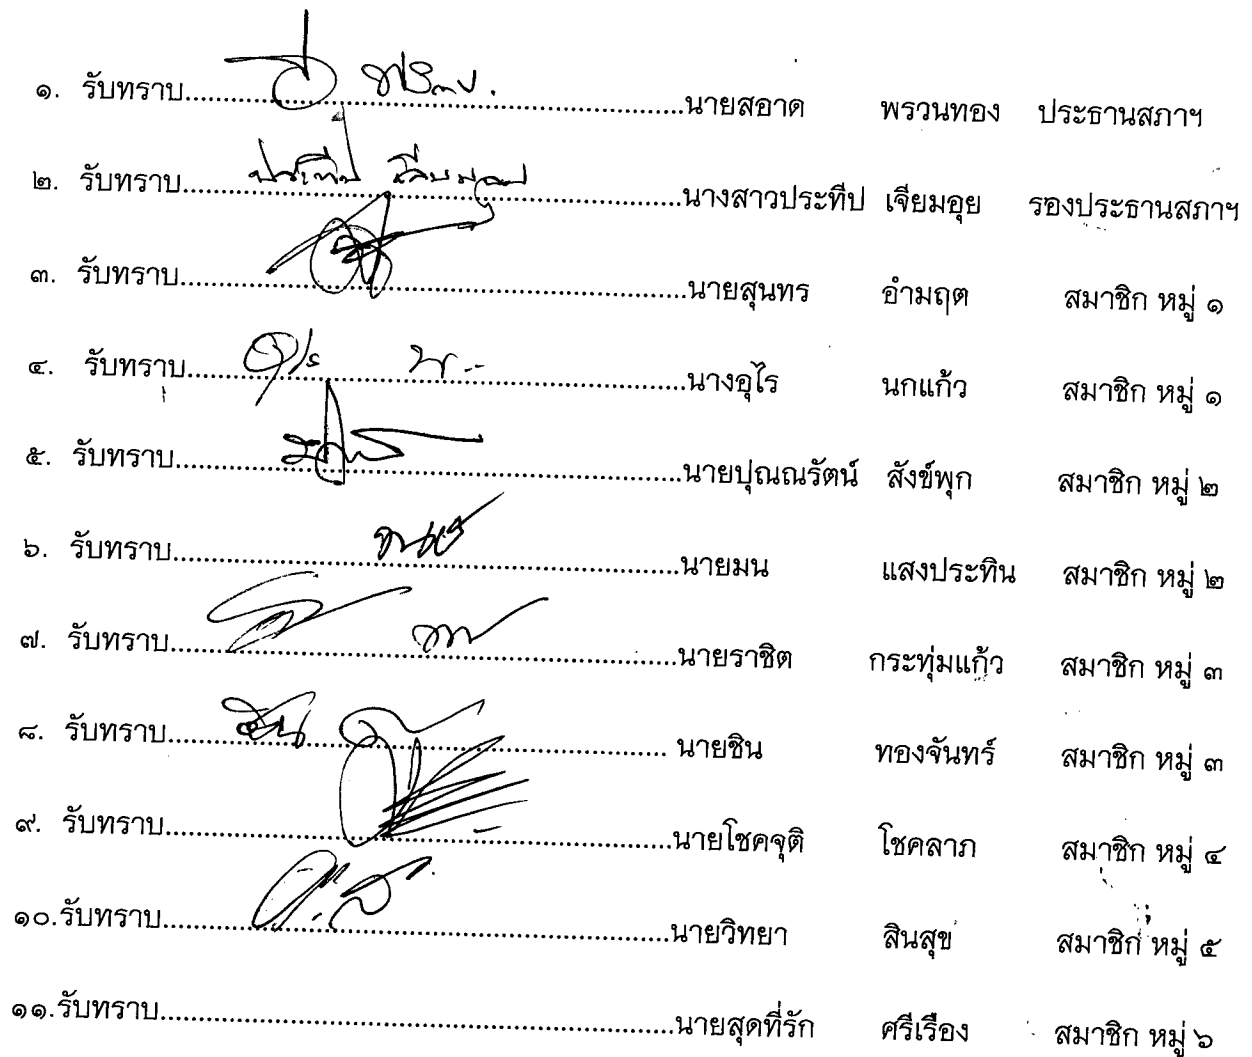 ๑. รับทราบ........................................นายสอาด พรวนทอง ประธานสภาฯ
๒. รับทราบ........................................นางสาวประทีป เจียมอุย รองประธานสภาฯ
๓. รับทราบ........................................นายสุนทร อำมฤต สมาชิก หมู่ ๑
๔. รับทราบ........................................นางอุไร นกแก้ว สมาชิก หมู่ ๑
๕. รับทราบ........................................นายปุณณรัตน์ สังข์พุก สมาชิก หมู่ ๒
๖. รับทราบ........................................นายมน แสงประทิน สมาชิก หมู่ ๒
๗. รับทราบ........................................นายราชิต กระทุ่มแก้ว สมาชิก หมู่ ๓
๘. รับทราบ........................................ นายชิน ทองจันทร์ สมาชิก หมู่ ๓
๙. รับทราบ........................................นายโชคจุติ โชคลาภ สมาชิก หมู่ ๔
๑๐.รับทราบ........................................นายวิทยา สินสุข สมาชิก หมู่ ๕
๑๑.รับทราบ........................................นายสุดที่รัก ศรีเรือง สมาชิก หมู่ ๖